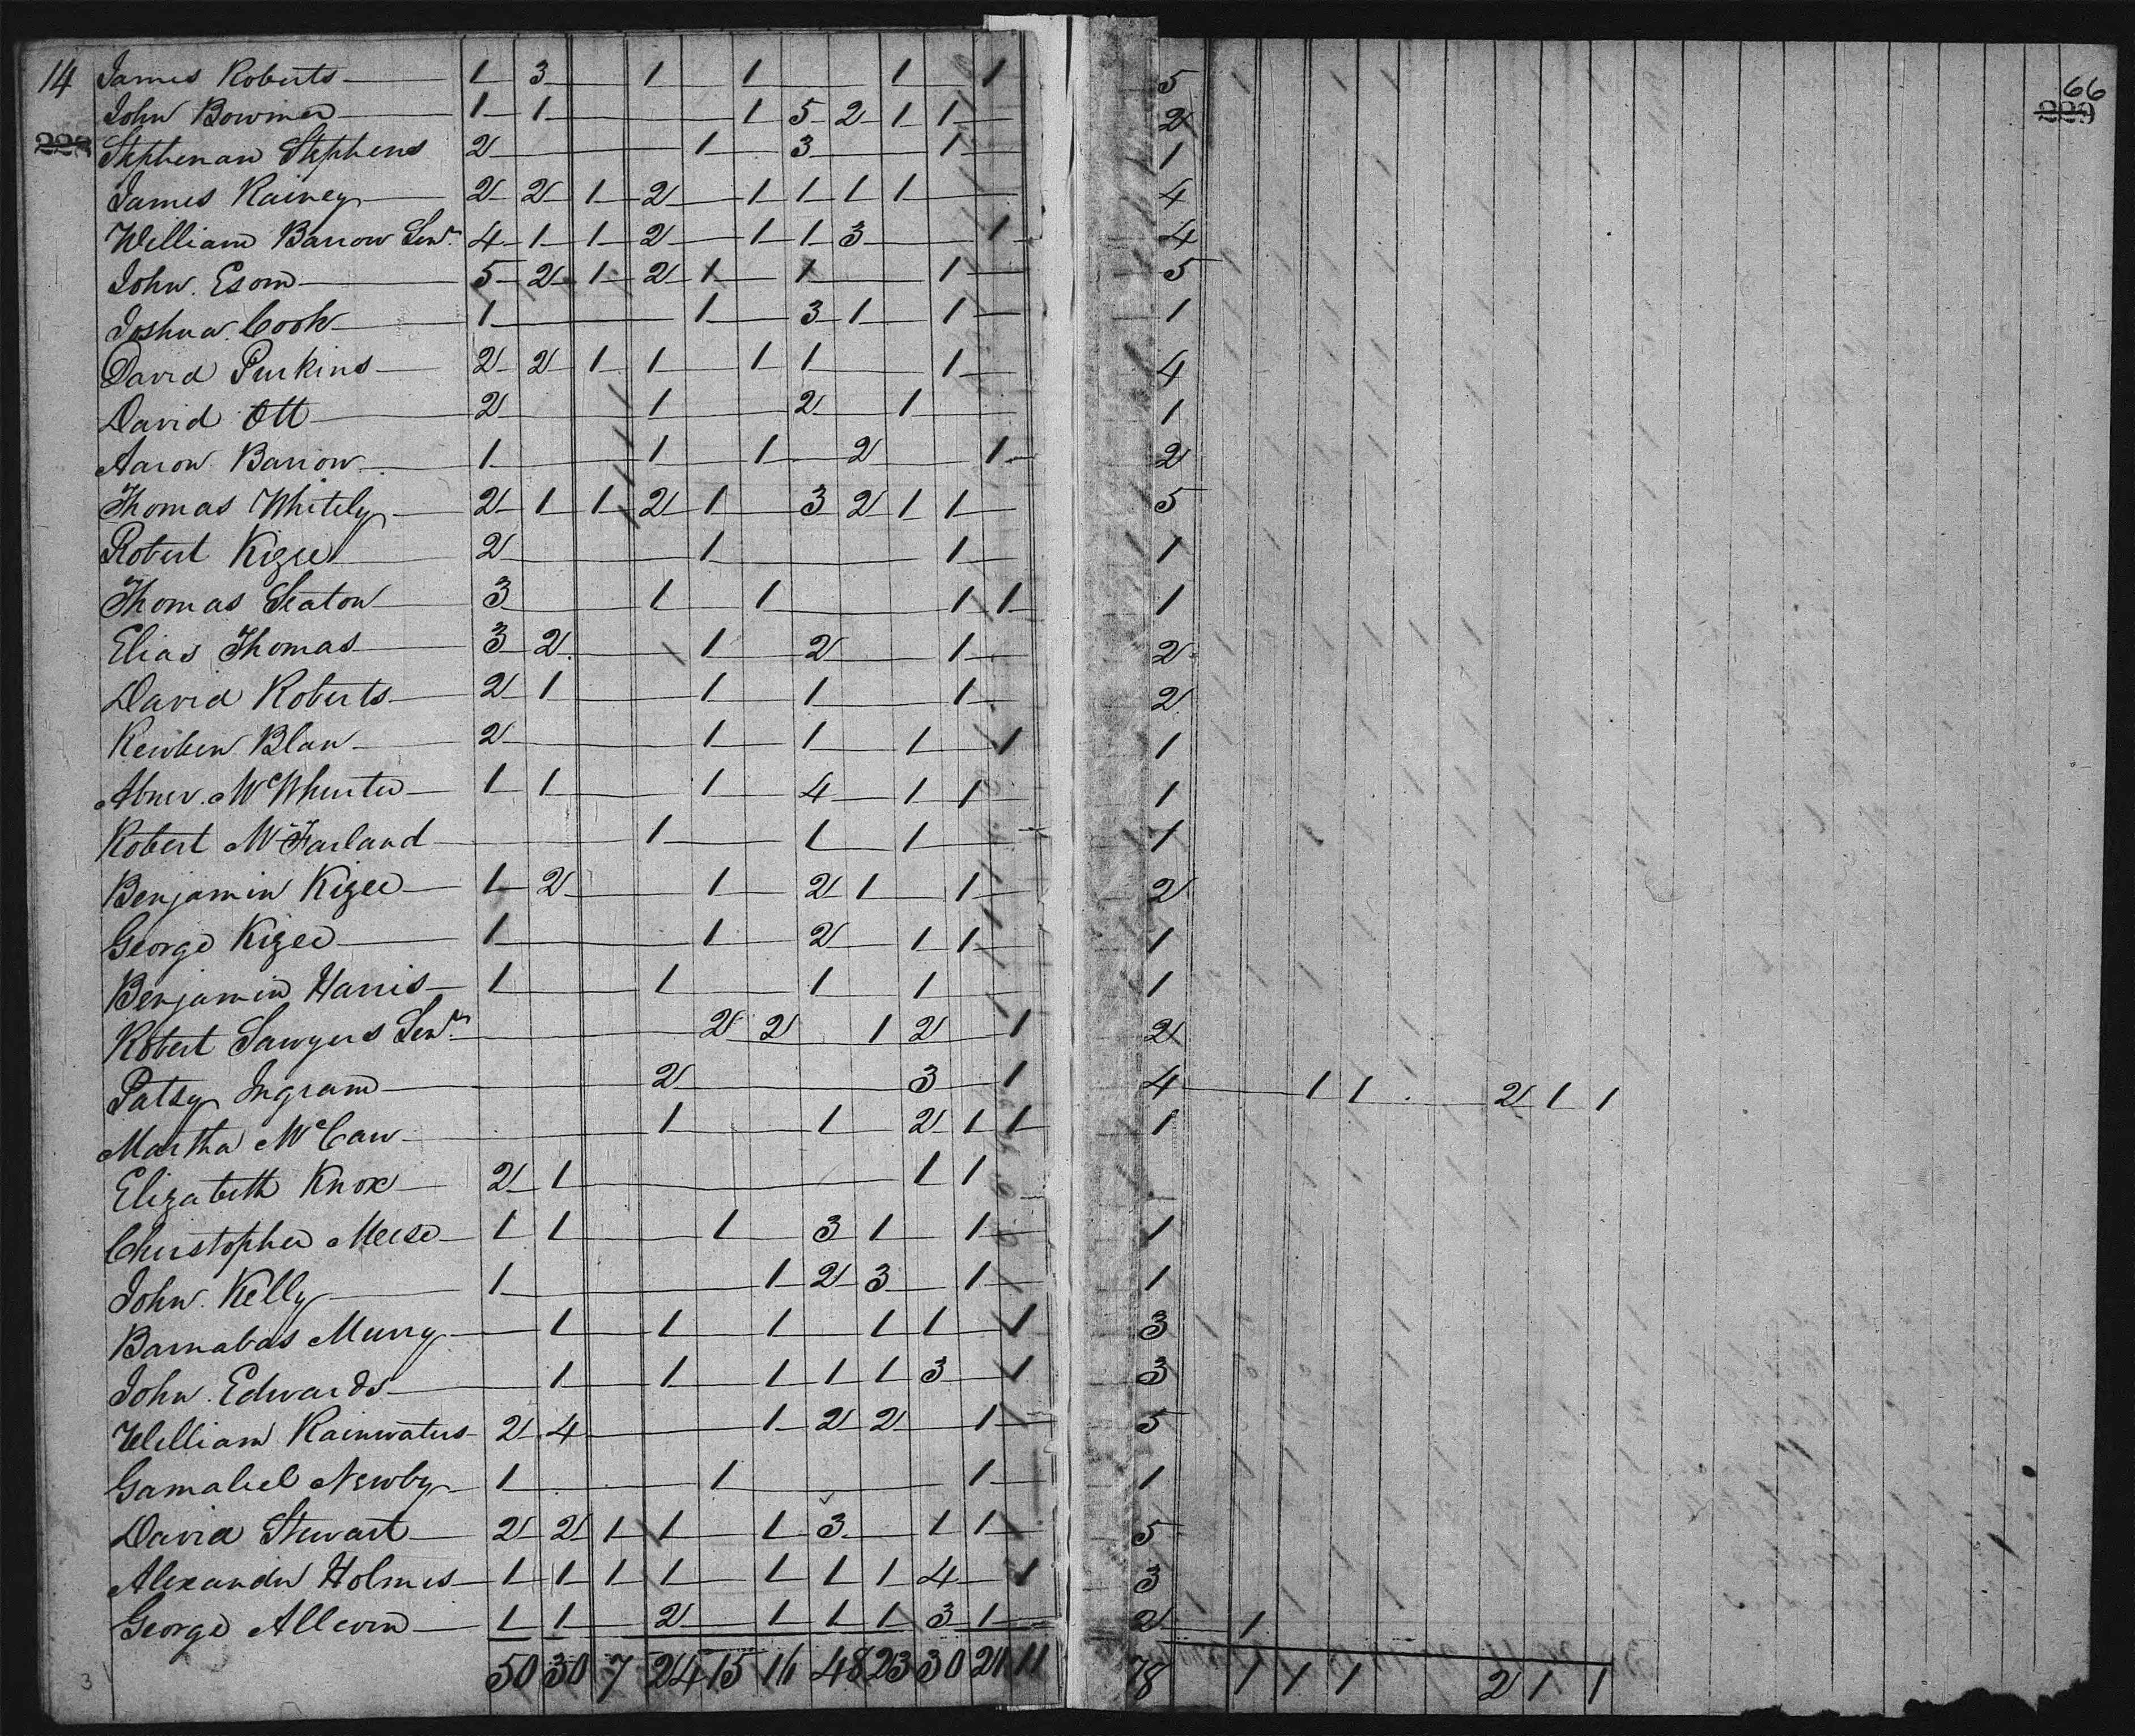 14 James Roberts 1 3 1 1 1 1 5 66
John Bowmer 1 1 1 5 2 1 1 2 229
228 Stephenan Stephens 2 1 3 1 1
James Rainey 2 2 1 2 1 1 1 1 4
William Barrow Senr. 4 1 1 2 1 1 3 1 4
John Esom 5 2 1 2 1 1 1 5
Joshua Cook 1 1 3 1 1 1
David Purkins 2 2 1 1 1 1 1 4
David Ott 2 1 2 1 1
Aaron Barrow 1 1 1 2 1 2
Thomas Whitely 2 1 1 2 1 3 2 1 1 5
Robert Kizee 2 1 1 1
Thomas Seaton 3 1 1 1 1 1
Elias Thomas 3 2 1 2 1 2
David Roberts 2 1 1 1 1 2
Reuben Blan 2 1 1 1 1 1
Abner McWhurter 1 1 1 4 1 1 1
Robert McFarland 1 1 1 1
Benjamin Kizee 1 2 1 2 1 1 2
George Kizee 1 1 2 1 1 1
Benjamin Harris 1 1 1 1 1
Robert Sawyers Senr. 2 2 1 2 1 2
Patsy Ingram 2 3 1 4 1 1 2 1 1
Martha McCaw 1 1 2 1 1 1
Elizabeth Knox 2 1 1 1
Christopher Meese 1 1 1 3 1 1 1
John Kelly 1 1 2 3 1 1
Barnabas Murry 1 1 1 1 1 1 3
John Edwards 1 1 1 1 1 3 1 3
William Rainwaters 2 4 1 2 2 1 5
Gamaliel Newby 1 1 1 1
David Stewart 2 2 1 1 1 3 1 1 5
Alexander Holmes 1 1 1 1 1 1 1 4 1 3
George Allcorn 1 1 2 1 1 1 3 1 2 1
50 30 7 24 15 16 48 23 30 21 11 78 1 1 1 2 1 1